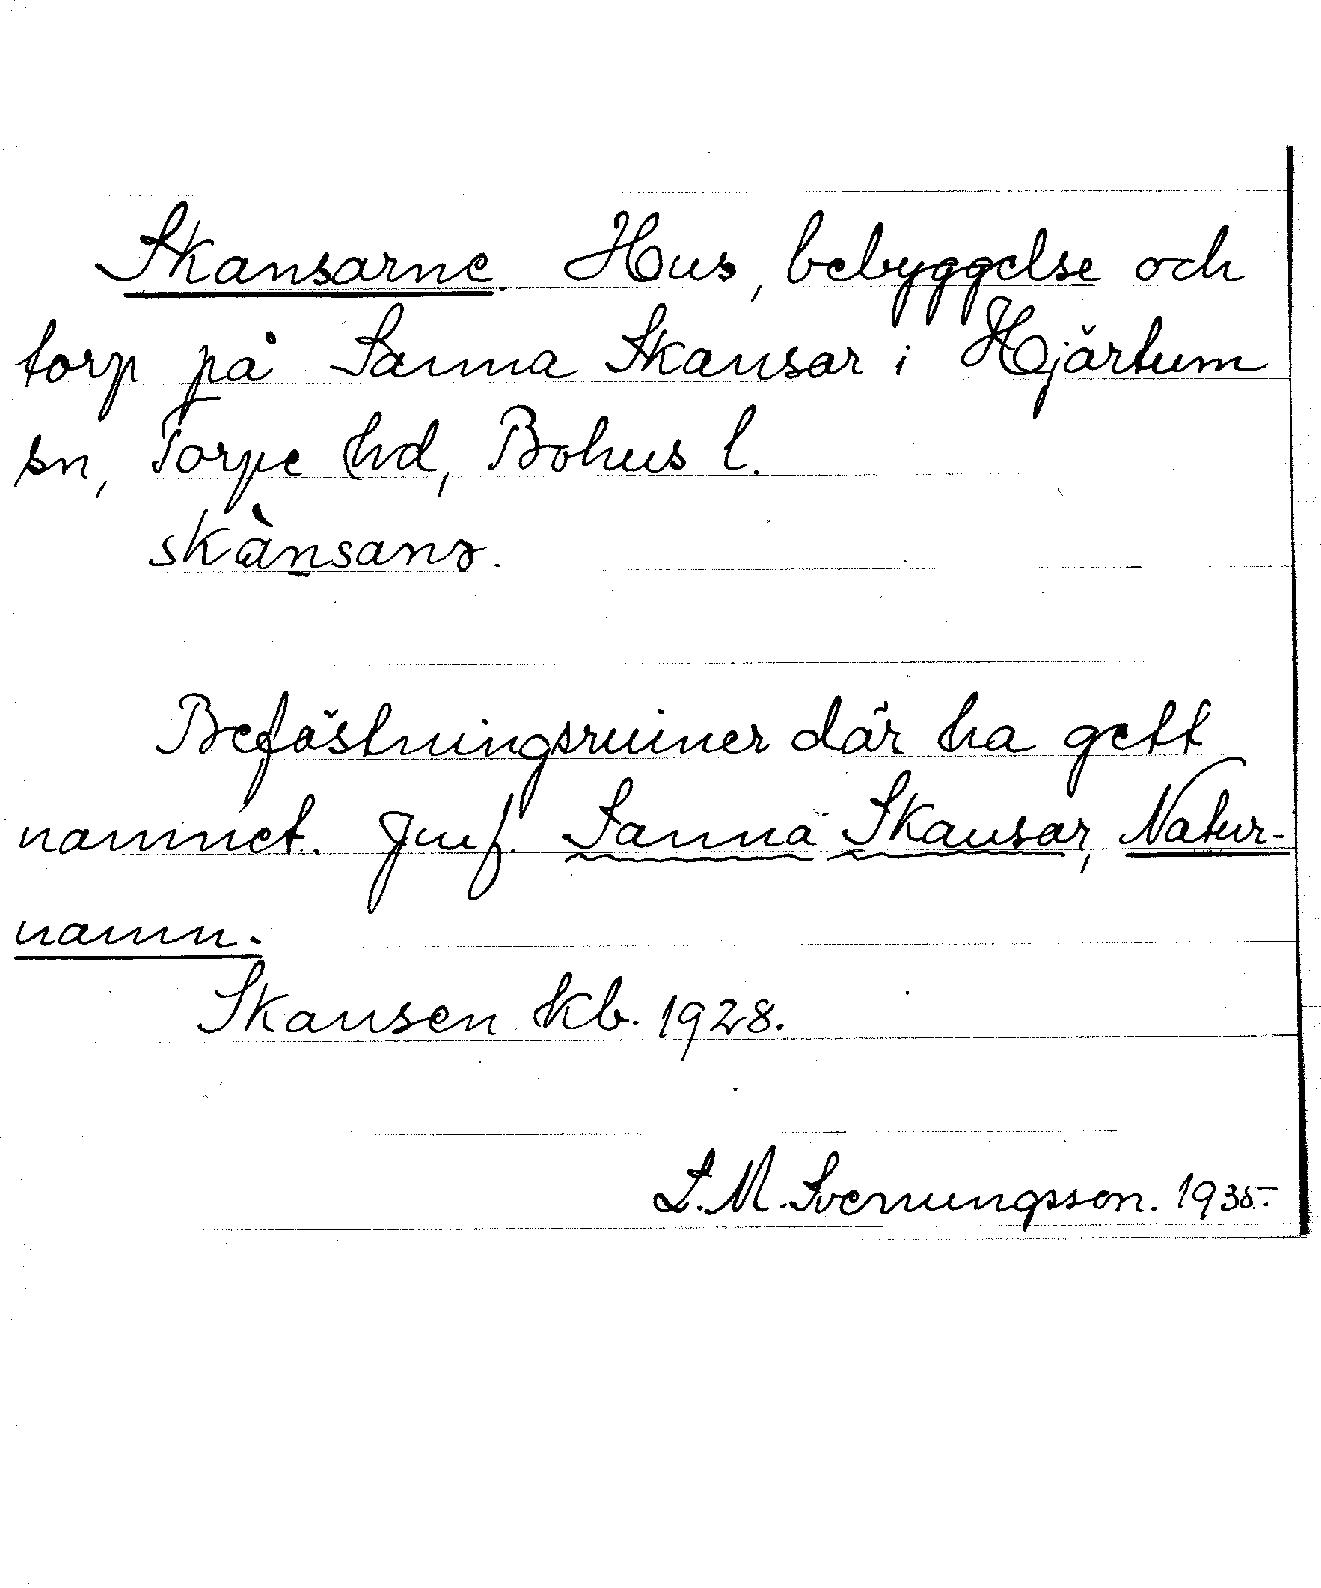 Skansarne. Hus, bebyggelse och
torp på Sanna Skansar i Hjärtum
sn, Torpe hd, Bohus l.
skànsanɘ.
Befästningsruiner där ha gett
namnet. Jmf. Sanna Skansar, Natur-
namn.
Skansen kb. 1928.
S. M. Svenungsson. 1935.